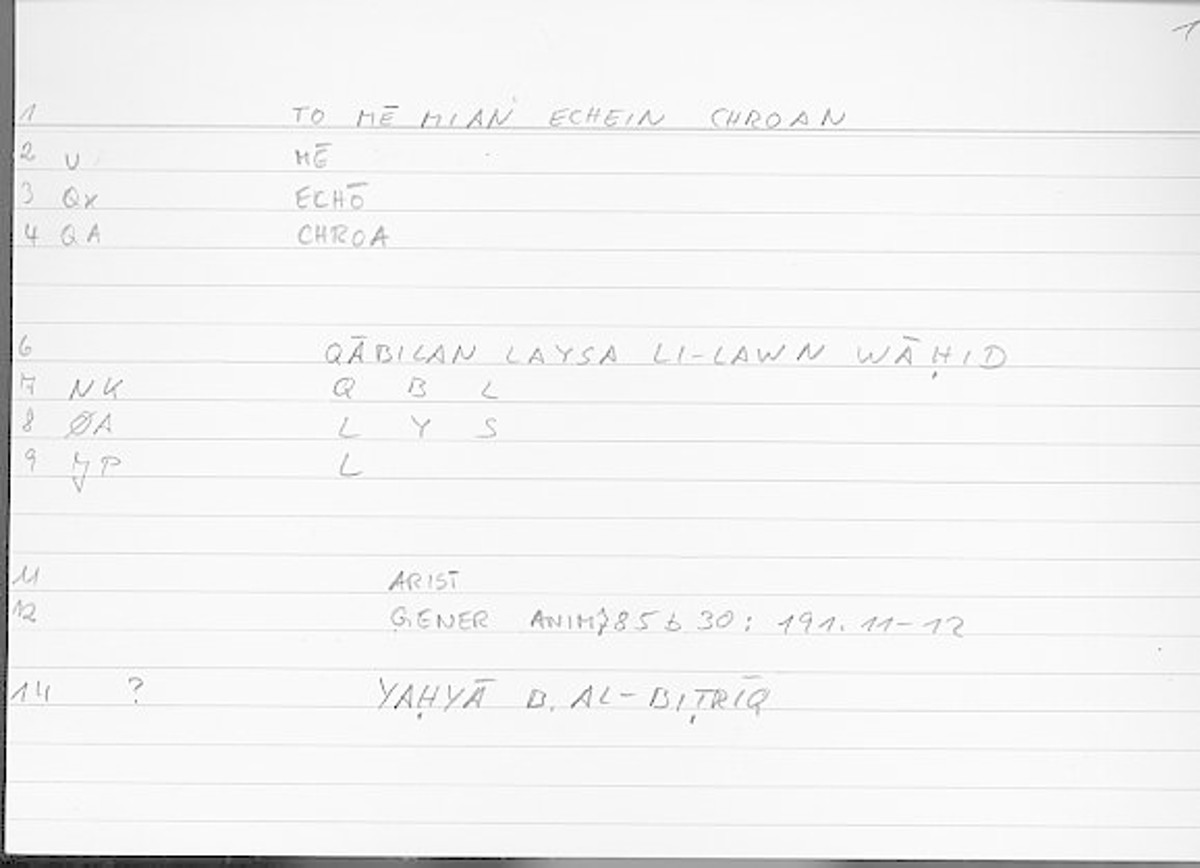 1
1 TO MĒ MIAN ECHEIN CHROAN
2 U MĒ
3 Qx ECHŌ
4 QA CHROA
6 QĀBILAN LAYSA LI-LAWN WĀḤID
7 NK Q B L
8 ØA L Y S
9 JP L
11 ARIST
12 GENER ANIM 785 b 30: 191.11-12
14 ? YAḤYĀ B. AL-BIṬRĪQ